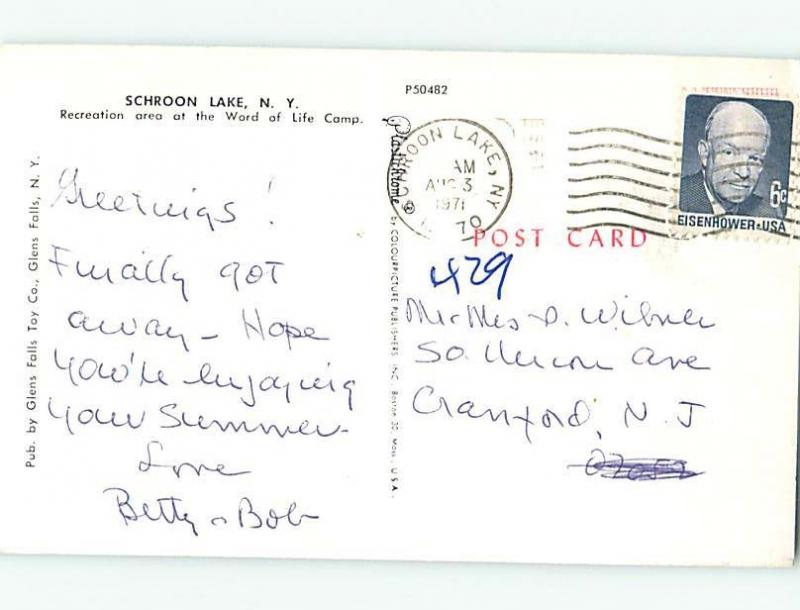 SCHROON LAKE, N. Y.
Recreation area at the Word of Life Camp.
Greetings!
Finally got
away - Hope
you're enjoying
your Summer.
Love
Betty & Bob
Pub. by Glens Falls Toy Co., Glens Falls, N. Y.
P50482
Plastichrome ® by COLOURPICTURE PUBLISHERS, INC. Boston 30, Mass. U.S.A.
SCHROON LAKE, NY
AM
AUG 3
1971
EISENHOWER·USA
6c
POST CARD
429
Mr Mrs D. Wilner
So. Union Ave
Cranford, N. J